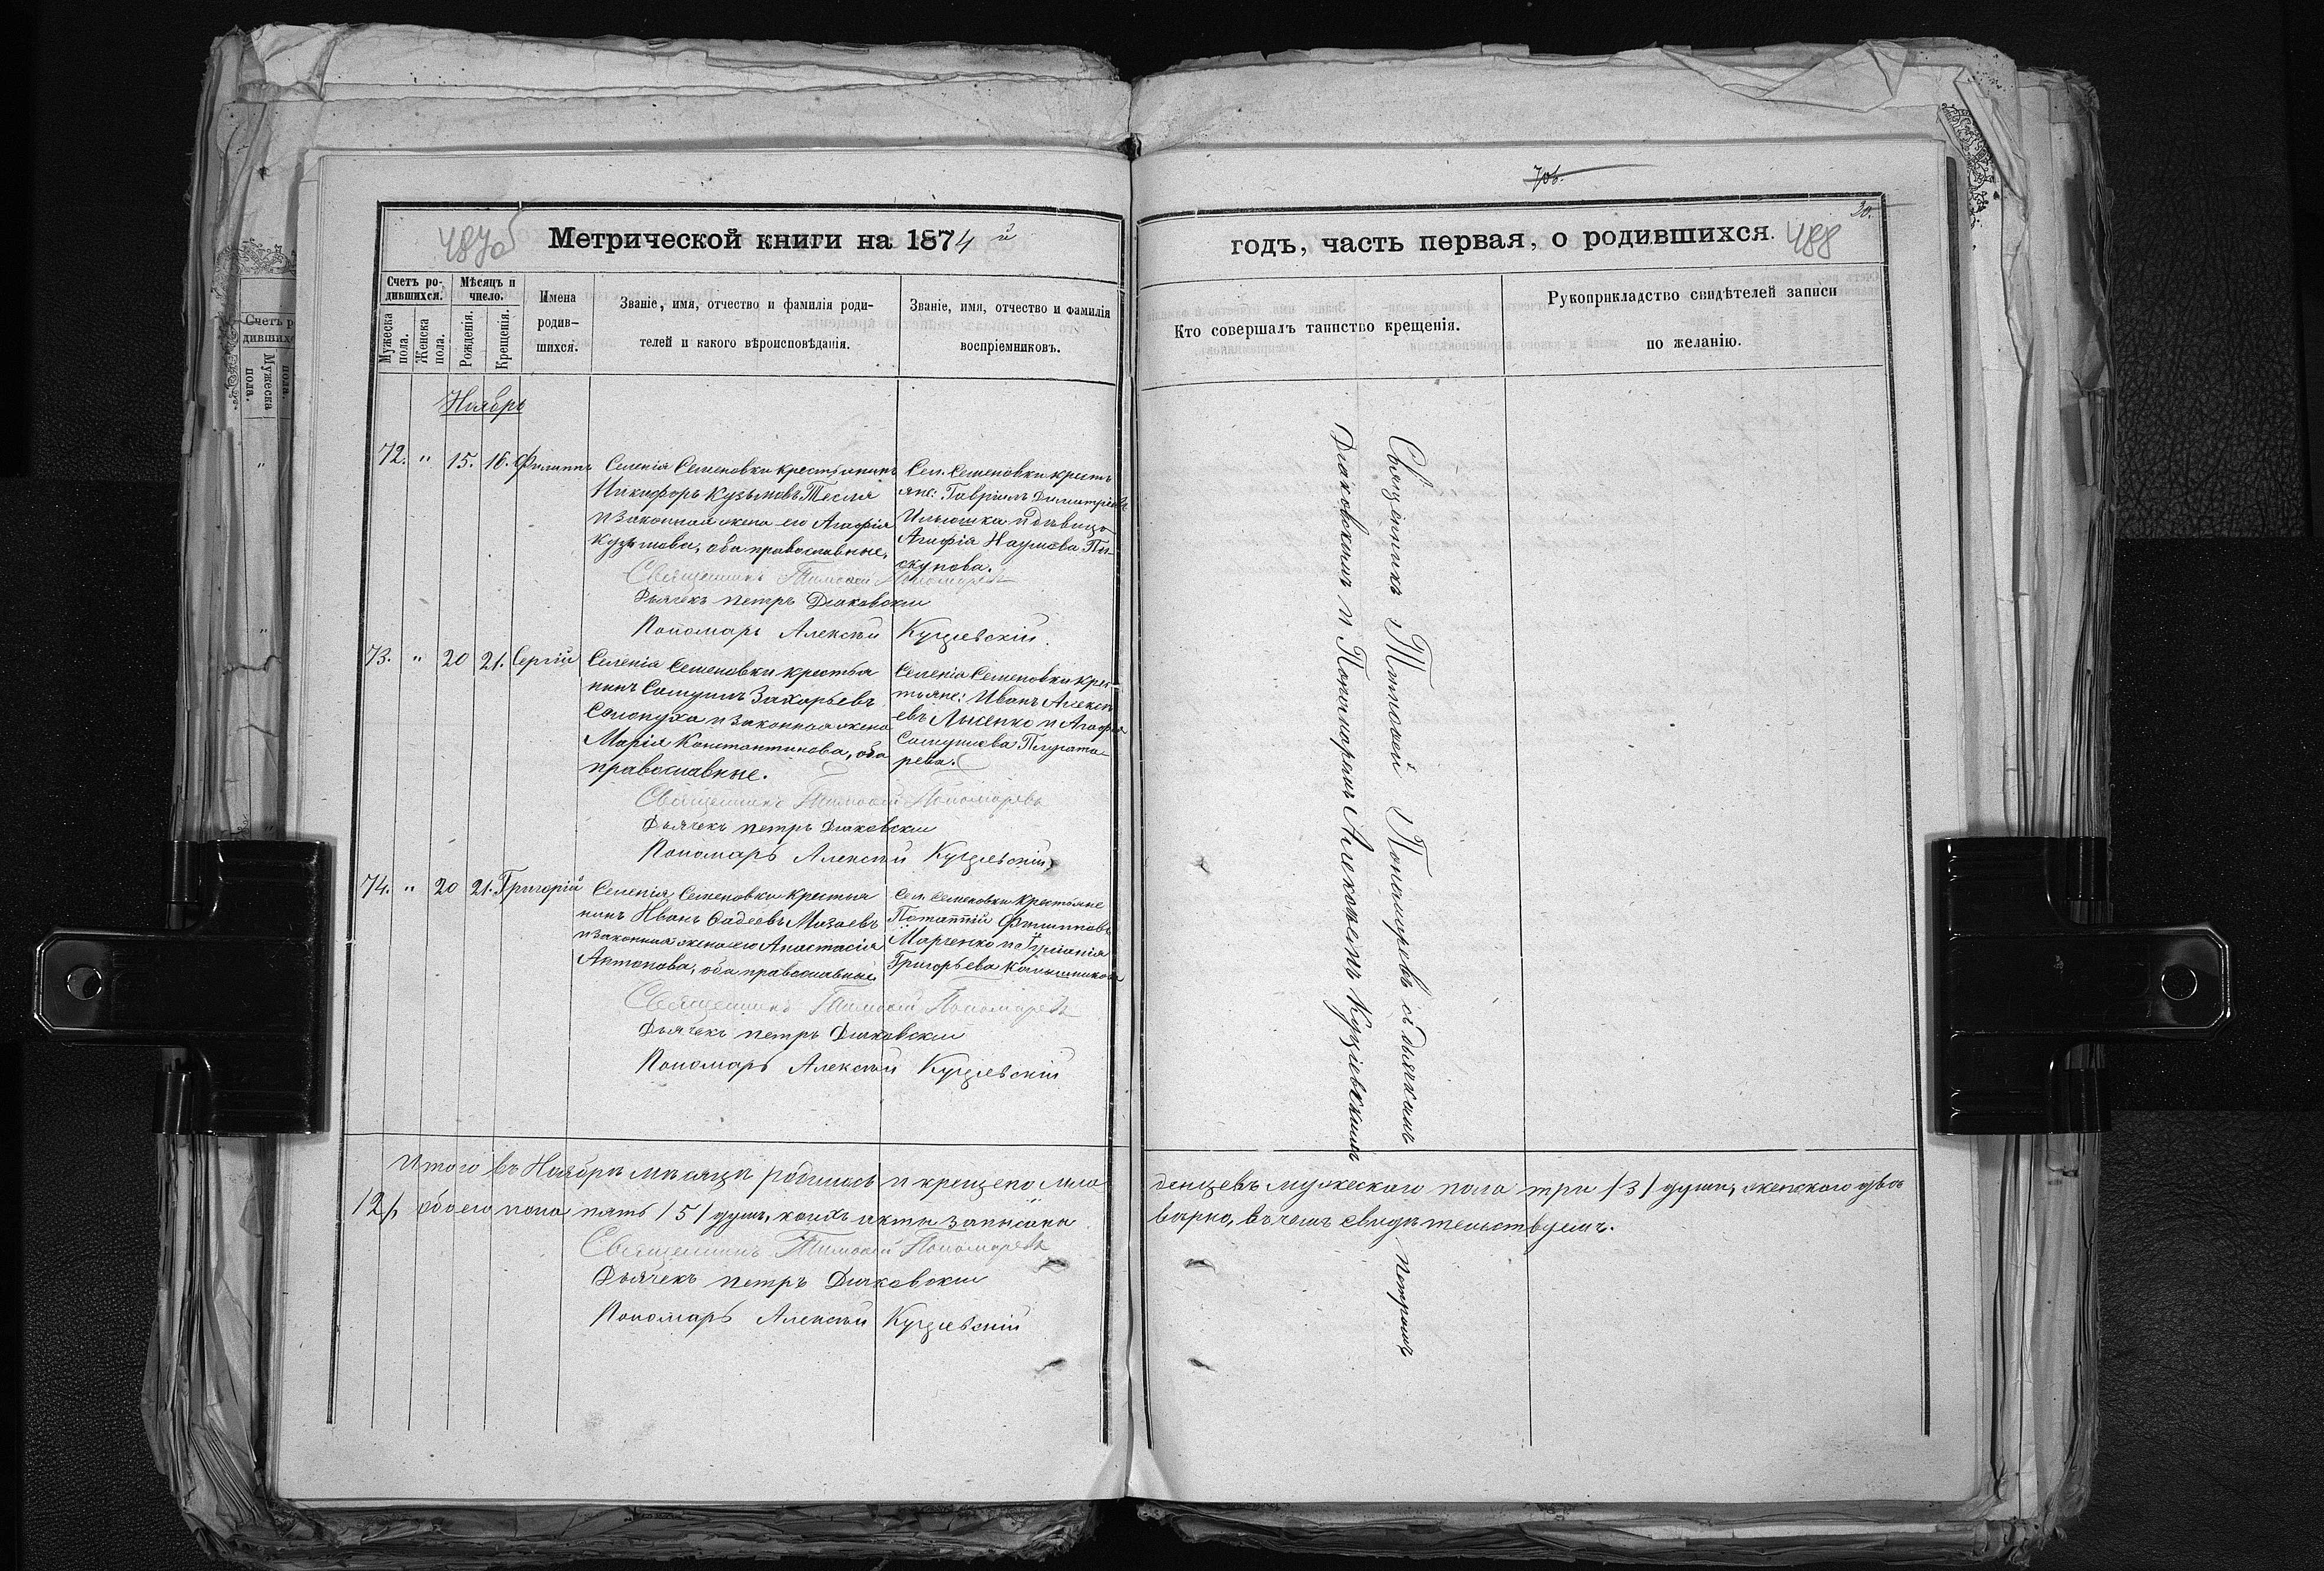 706.
30.
487об
Метрической книги на 1874 й
годъ, часть первая, о родившихся.
488
Счетъ родившихся.
Мѣсяцъ и число.
Мужеска пола.
Женска пола.
Рожденія.
Крещенія.
Имена родив-
шихся.
Званіе, имя, отчество и фамилія роди-
телей и какого вѣроисповѣданія.
Званіе, имя, отчество и фамилія
воспріемниковъ.
Кто совершалъ таинство крещенія.
Рукоприкладство свидѣтелей записи
по желанію.
Ноябрь
72. " 15. 16. Филиппъ
Селенія Семеновки крестьянинъ
Никифоръ Кузьмовъ Тесля
и законная жена его Агафія
Кузьмова, оба православные,
Сел. Семеновки кресть
яне: Гавріилъ Димитріевъ
Ильюшка и дѣвица
Агафія Наумова Пи-
скунова.
Священникъ Тимофей Пономаревъ
Дьячекъ Петръ Дьяковскій
Пономарь Алексѣй Куцѣевскій.
73. " 20 21. Сергій
Селенія Семеновки крестья
нинъ Самуилъ Захарьевъ
Солопуха и законная жена
Марія Константинова, оба
православные.
Селенія Семеновки крес
тьяне: Иванъ Алексѣ
евъ Лысенко и Агафія
Самуилова Плугата-
рева.
Священникъ Тимофей Пономаревъ
Дьячекъ Петръ Дьяковскій
Пономарь Алексѣй Куцѣевскій
74. " 20 21. Григорій
Селенія Семеновки крестья
нинъ Иванъ Фадеевъ Мазаевъ
и законная жена его Анастасія
Антонова, оба православные.
Сел. Семеновки крестьяне
Потапій Филипповъ
Марченко и
Григорьева Калашникова
Священникъ Тимофей Пономаревъ
Дьячекъ Петръ Дьяковскій
Пономарь Алексѣй Куцѣевскій
Священникъ Тимофей Пономаревъ съ дьячкомъ Петромъ
Дьяковскимъ и Пономаремъ Алексѣемъ Куцѣевскимъ
Итого въ Ноябрѣ мѣсяцѣ родилось и крещено мла
денцевъ мужескаго пола три /3/ души, женскаго два
/2/, обоего пола пять /5/ душъ, коихъ акты записаны
вѣрно, въ чемъ свидѣтельствуемъ.
Священникъ Тимофей Пономаревъ
Дьячекъ Петръ Дьяковскій
Пономарь Алексѣй Куцѣевскій